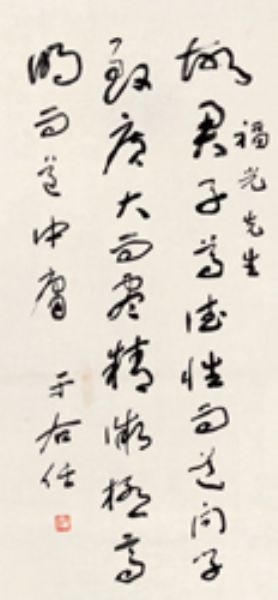 福光先生
故君子尊德性而道问学
致广大而尽精微极高
明而道中庸
于右任